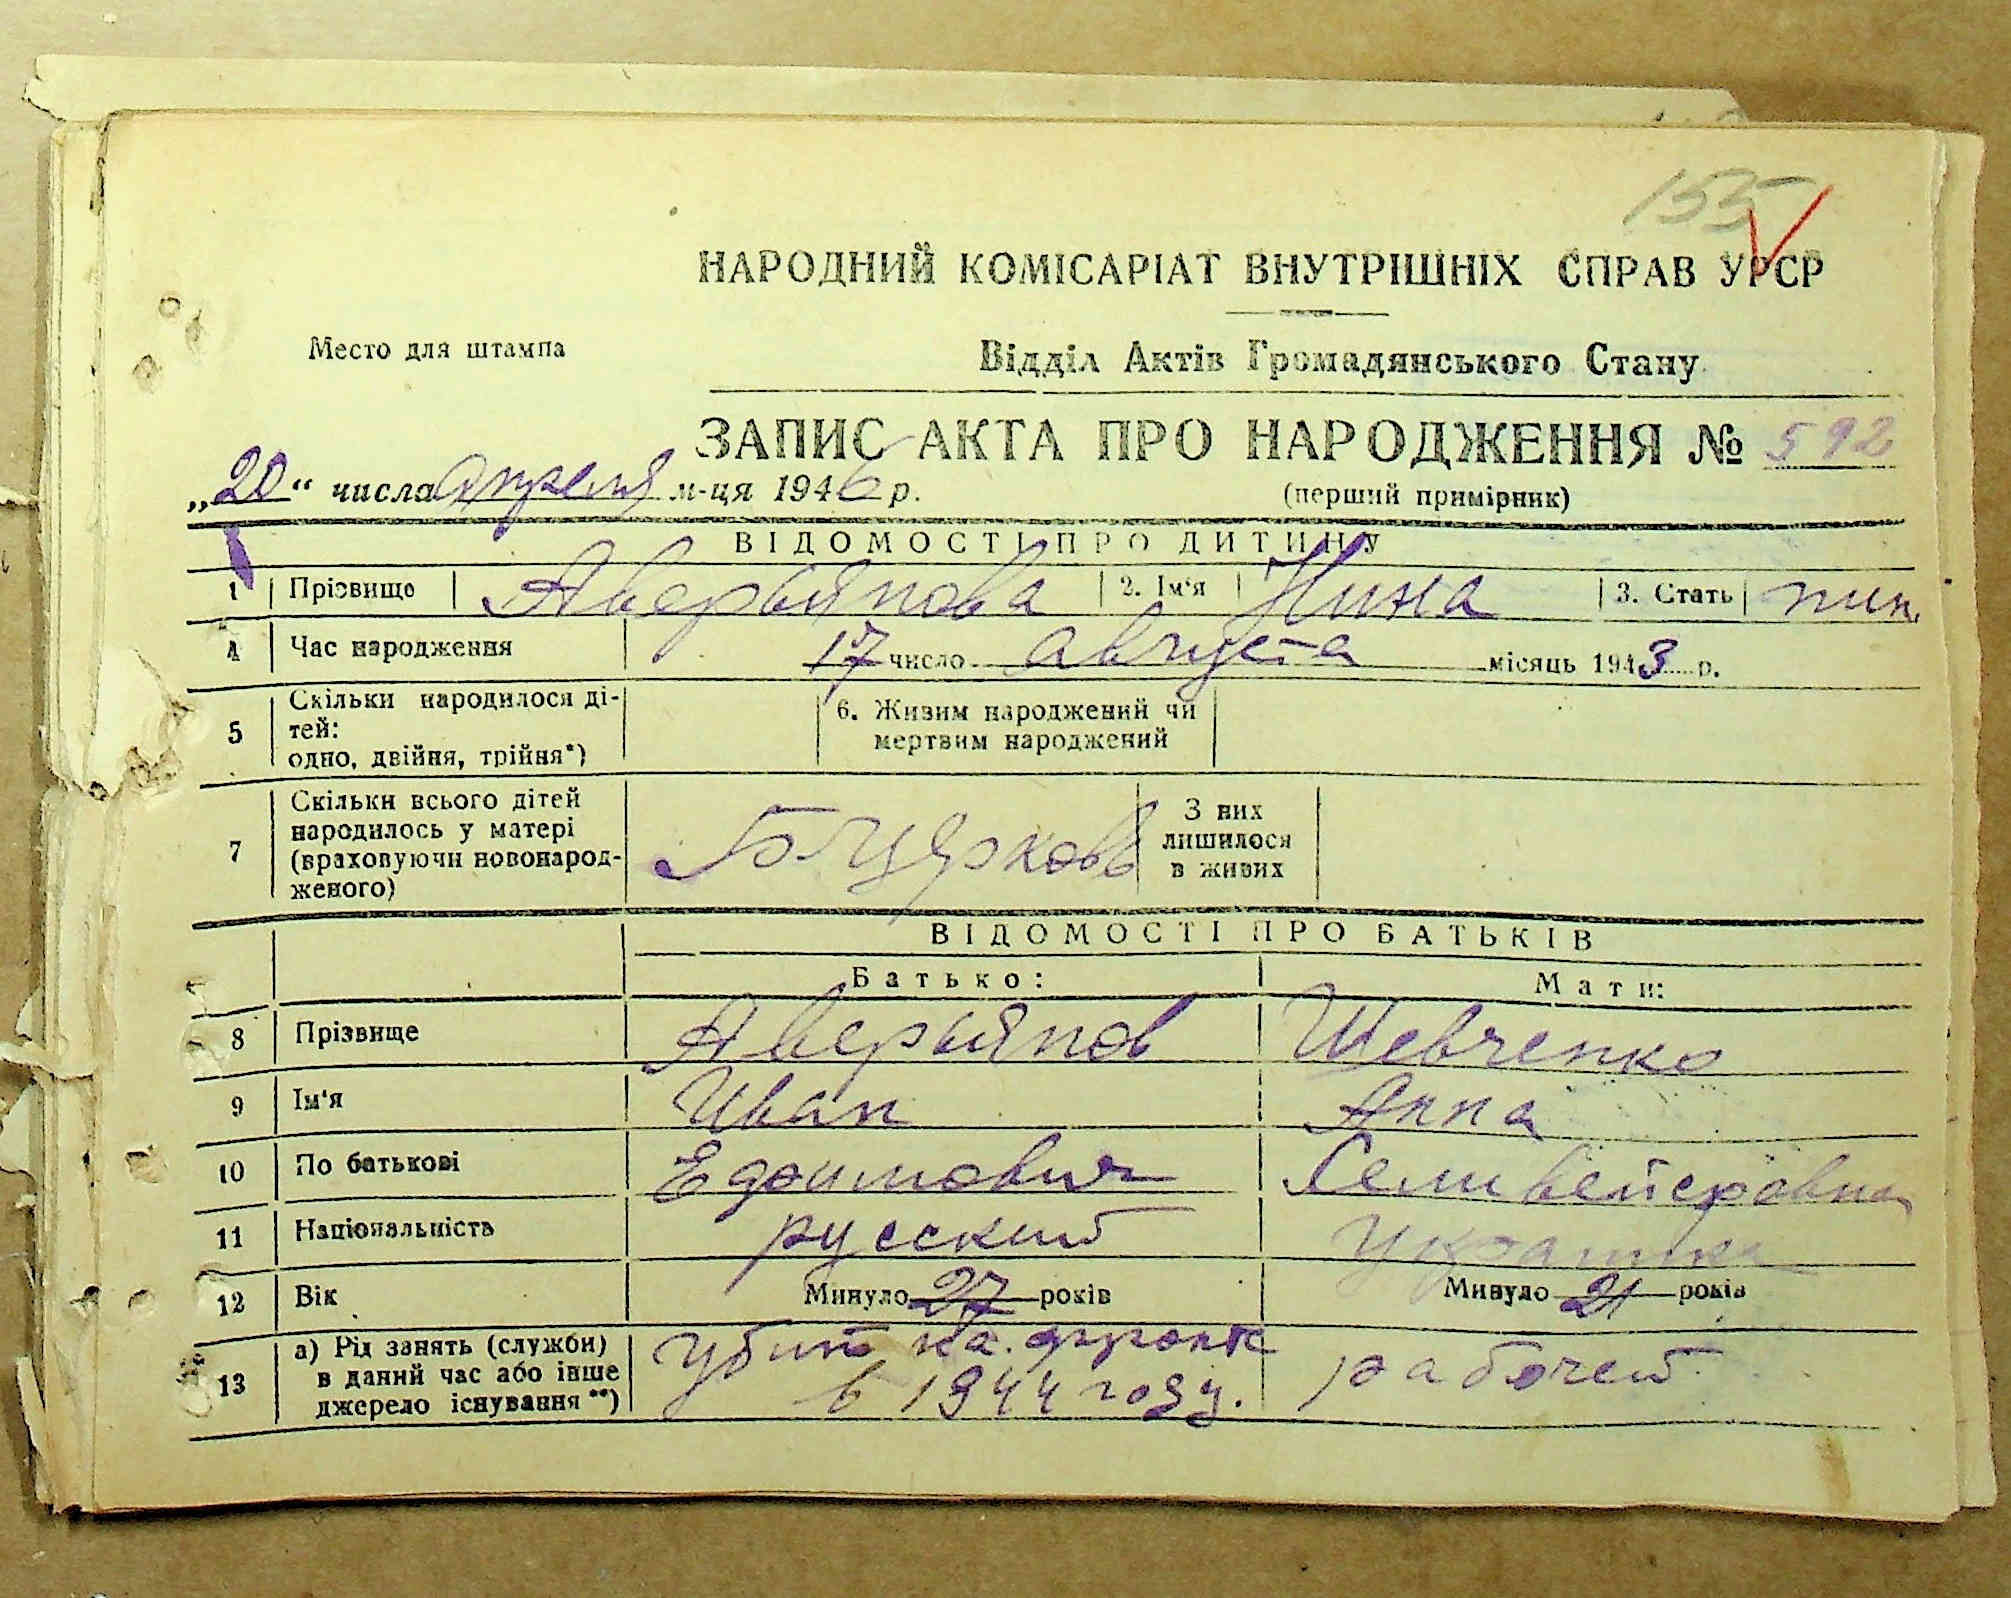 155
НАРОДНИЙ КОМІСАРІАТ ВНУТРІШНІХ СПРАВ УРСР
Место для штампа
Відділ Актів Громадянського Стану
ЗАПИС АКТА ПРО НАРОДЖЕННЯ № 592
„20“ числа апреля м-ця 1946 р.
(перший примірник)
ВІДОМОСТІ ПРО ДИТИНУ
1 Прізвище Аверьянова 2. Ім'я Нина 3. Стать
4 Час народження 17 число августа місяць 1943 р.
5 Скільки народилося дітей: одно, двійня, трійня*)
6. Живим народжений чи мертвим народжений
7 Скільки всього дітей народилось у матері (враховуючи новонародженого)
З них лишилося в живих
ВІДОМОСТІ ПРО БАТЬКІВ
Батько: Мати:
8 Прізвище Аверьянов Шевченко
9 Ім'я Иван Анна
10 По батькові Ефимович Селивейстровна
11 Національність русский Украинка
12 Вік Минуло 27 років Минуло 21 років
13 а) Рід занять (служби) в даний час або інше джерело існування**)
убит на фронте
в 1944 году.
рабочей